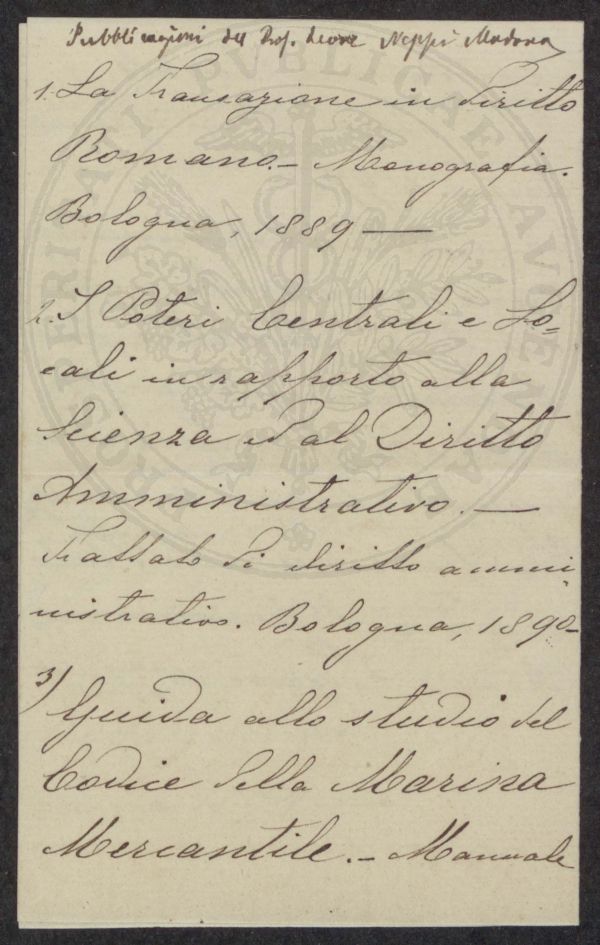 Pubblicazioni del Prof. Leone Neppi Modona
1. La Transazione in Diritto
Romano. – Monografia.
Bologna, 1889 —
2. I Poteri Centrali e Lo=
cali in rapporto alla
Scienza e al Diritto
Amministrativo. —
Trattato di diritto ammi
nistrativo. Bologna, 1890 –
3) Guida allo studio del
Codice della Marina
Mercantile. – Manuale